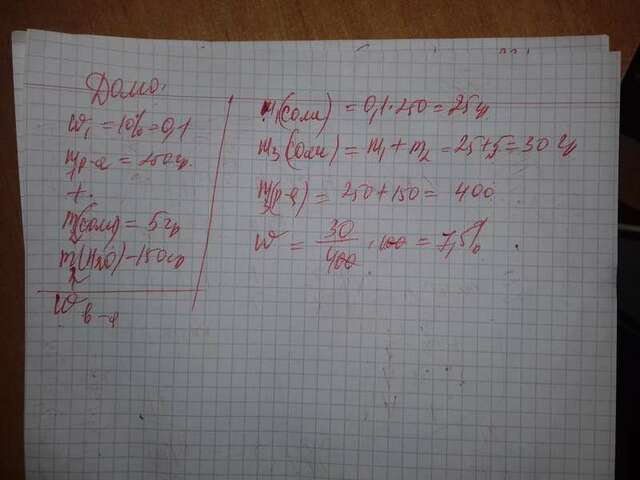 Дано:
w₁ = 10% = 0,1
mр-а = 250г.
+
m₂(соли) = 5г
m(H₂O) = 150г
w₃ в-в
m₁(соли) = 0,1·250 = 25г
m₃(соли) = m₁ + m₂ = 25+5=30г
m₃(р-р) = 250+150 = 400
w = 30/400 · 100 = 7,5%